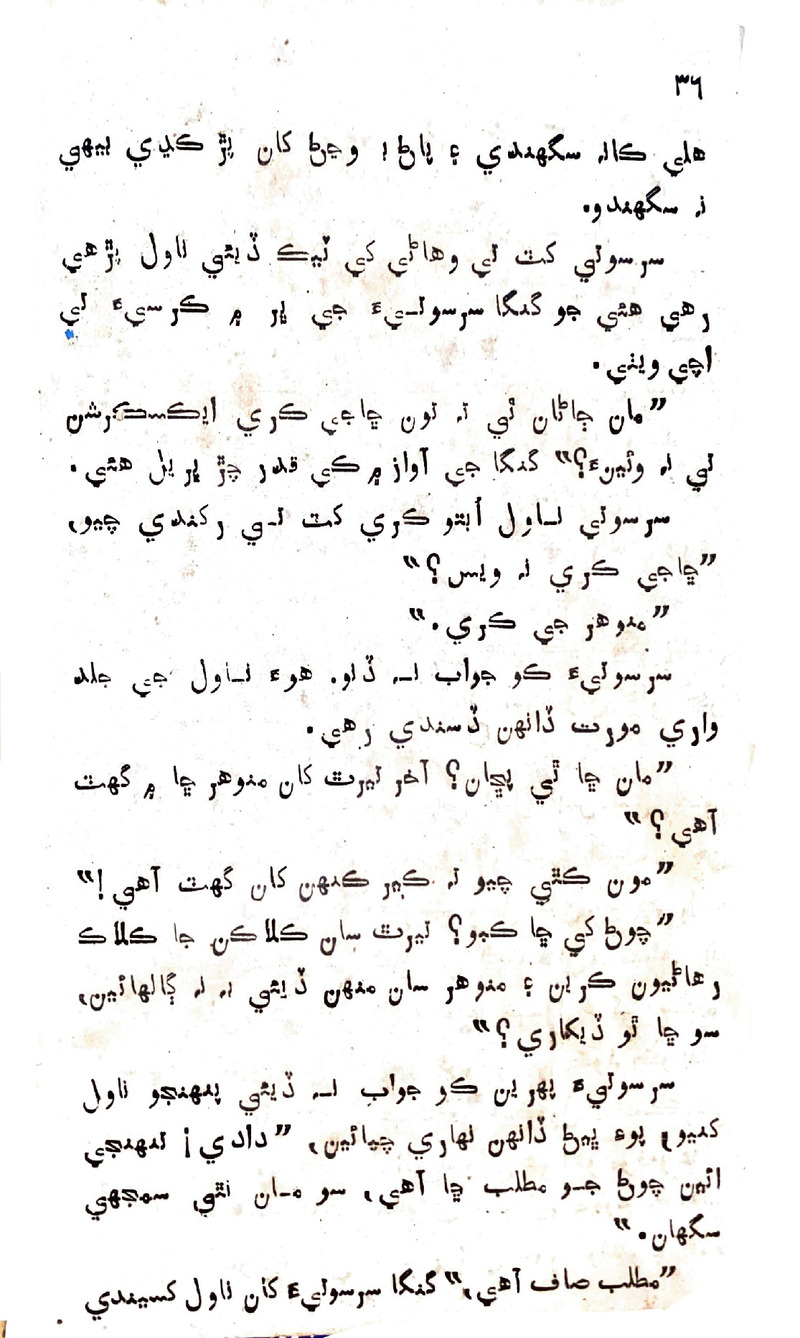 ٣٦
هلي ڪانہ سگهندي ۽ پاڻ! وڃڻ کان پڙ ڪڍي بيهي
نہ سگهندو.
سرسوتي کٽ تي وهاڻي کي ٽيڪ ڏيئي ناول پڙهي
رهي هئي جو گنگا سرسوتيءَ جي ڀر ۾ ڪرسيءَ تي
اچي ويٺي.
”مان ڄاڻان ٿي تہ تون ڇاجي ڪري ايڪسڪرشن
تي نہ وئينءَ؟“ گنگا جي آواز ۾ ڪي قدر چڙ ڀريل هئي.
سرسوتي نـاول اُبتو ڪري کٽ تـي رکندي چيو،
”ڇاجي ڪري نہ ويس؟“
”منوهر جي ڪري.“
سرسوتيءَ ڪو جواب نـہ ڏنو. هوءَ نـاول جي جلد
واري مورت ڏانهن ڏسندي رهي.
”مان ڇا ٿي پڇان؟ آخر تيرٿ کان منوهر ڇا ۾ گهٽ
آهي؟“
”مون ڪٿي چيو تہ ڪير ڪنهن کان گهٽ آهي!“
”چوڻ کي ڇا ڪبو؟ تيرٿ سان ڪلاڪن جا ڪلاڪ
رهاڻيون ڪرين ۽ منوهر سان منهن ڏيئي بہ نہ ڳالهائين،
سو ڇا ٿو ڏيکاري؟“
سرسوتيءَ پهرين ڪو جواب نـہ ڏيئي پنهنجو ناول
کنيو، پوءِ ڀيڻ ڏانهن نهاري چيائين، ”دادي! تنهنجي
ائين چوڻ جـو مطلب ڇا آهي، سو مـان نٿي سمجهي
سگهان.“
”مطلب صاف آهي،“ گنگا سرسوتيءَ کان ناول کسيندي